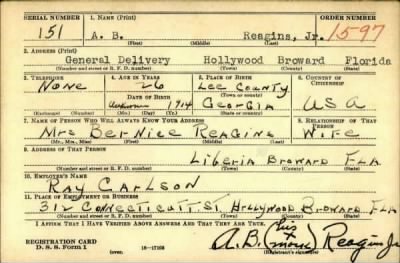 SERIAL NUMBER 1. NAME (Print) ORDER NUMBER
151 A. B. Reagins, Jr. 1597
(First) (Middle) (Last)
2. ADDRESS (Print)
General Delivery Hollywood Broward Florida
(Number and street or R. F. D. number) (Town) (County) (State)
3. TELEPHONE 4. AGE IN YEARS 5. PLACE OF BIRTH 6. COUNTRY OF CITIZENSHIP
None 26 Lee County
(Town or county)
DATE OF BIRTH
Unknown 1914 Georgia USA
(Exchange) (Number) (Mo.) (Day) (Yr.) (State or country)
7. NAME OF PERSON WHO WILL ALWAYS KNOW YOUR ADDRESS 8. RELATIONSHIP OF THAT PERSON
Mrs Bernice Reagins Wife
(Mr., Mrs., Miss) (First) (Middle) (Last)
9. ADDRESS OF THAT PERSON
Liberia Broward Fla
(Number and street or R. F. D. number) (Town) (County) (State)
10. EMPLOYER'S NAME
Ray Carlson
11. PLACE OF EMPLOYMENT OR BUSINESS
312 Connecticutt St. Hollywood Broward Fla
(Number and street or R. F. D. number) (Town) (County) (State)
I AFFIRM THAT I HAVE VERIFIED ABOVE ANSWERS AND THAT THEY ARE TRUE.
his
REGISTRATION CARD A. B. (mark) Reagins Jr
D. S. S. Form 1 (over) 16-17105 (Registrant's signature)